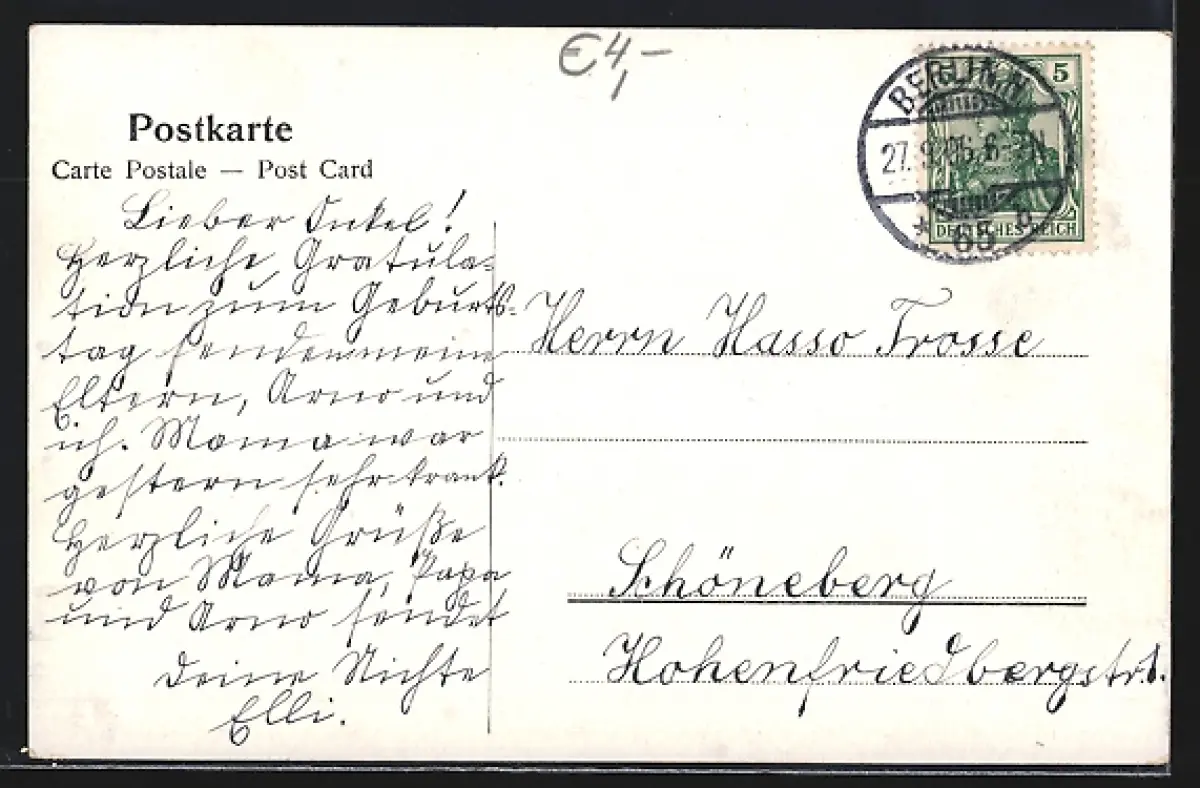 €4,-
Postkarte
Carte Postale — Post Card
BERLIN.N.
27.9.05.6-7N
* 65 b
5
DEUTSCHES REICH
Lieber Onkel!
Herzliche Gratula-
tion zum Geburts-
tag senden meine
Eltern, Arno und
ich. Mama war
gestern sehr krank.
Herzliche Grüße
von Mama, Papa
und Arno sendet
Deine Nichte
Elli.
Herrn Hasso Trosse
Schöneberg
Hohenfriedbergstr.